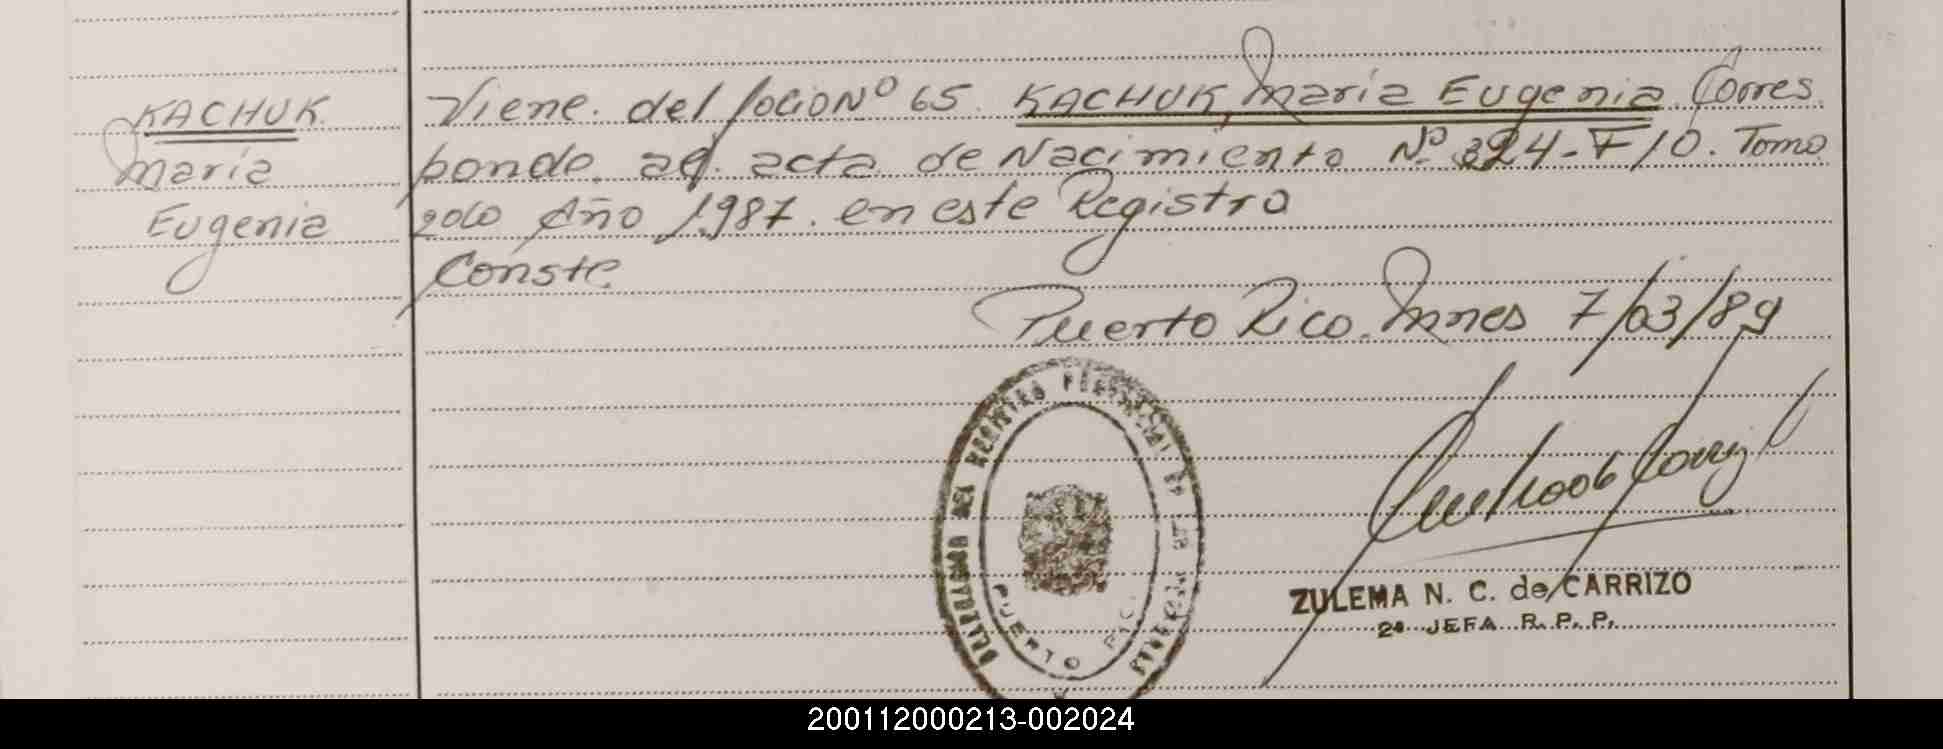 KACHUK
María
Eugenia
Viene. del folio Nº 65. KACHUK, María Eugenia. Corres
ponde. al. acta de Nacimiento Nº 324-F/0. Tomo
2do Año 1987. en este Registro
Conste
Puerto Rico. Mnes 7/03/89
DELEGACION DEL REGISTRO PROVINCIAL DE LAS PERSONAS
PUERTO RICO
ZULEMA N. C. de CARRIZO
2ª JEFA R. P. P.
200112000213-002024